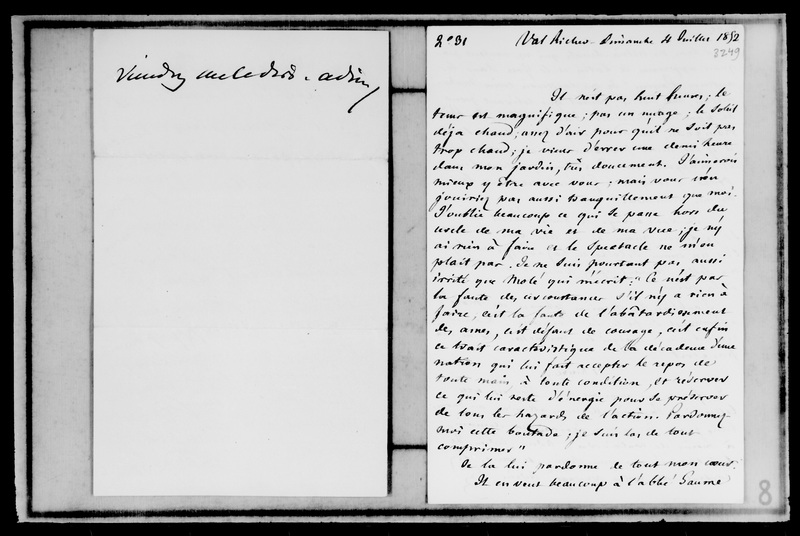 adieu
2º31 Val Richer - Dimanche 4 Juillet 1852
8249
Il n'est pas huit heures ; le
tems est magnifique ; pas un nuage ; le soleil
déja chaud, assez d'air pour qu'il ne soit pas
trop chaud ; je viens d'errer une demi heure
dans mon jardin, très doucement. J'aimerois
mieux y être avec vous ; mais vous n'en
jouiriez pas aussi tranquillement que moi.
J'oublie beaucoup ce qui se passe hors du
cercle de ma vie et de ma vue ; je n'y
ai rien à faire et le spectacle ne m'en
plait pas. Je ne suis pourtant pas aussi
irrité que Molé qui m'écrit : "Ce n'est pas
la faute des circonstances s'il n'y a rien à
faire, c'est la faute de l'abâtardissement
des ames, c'est défaut de courage, c'est enfin
ce trait caractéristique de la décadence d'une
nation qui lui fait accepter le repos de
toute main, à toute condition, et réserver
ce qui lui reste d'énergie pour se préserver
de tous les hazards de l'action. Pardonnez
moi cette boutade ; je suis las de tout
comprimer"
Je la lui pardonne de tout mon cœur.
Il en veut beaucoup à l'abbé Gaume
8